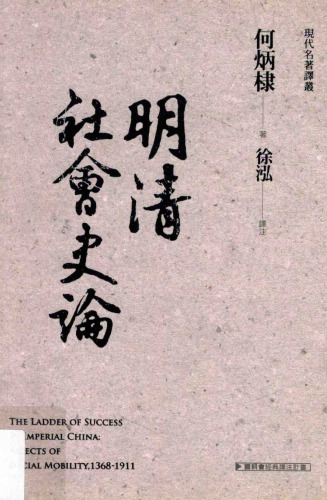 現代名著譯叢
何炳棣
著
徐泓
譯注
明清
社會史論
THE LADDER OF SUCCESS
IMPERIAL CHINA:
ECTS OF
CIAL MOBILITY, 1368-1911
國科會經典譯注計畫